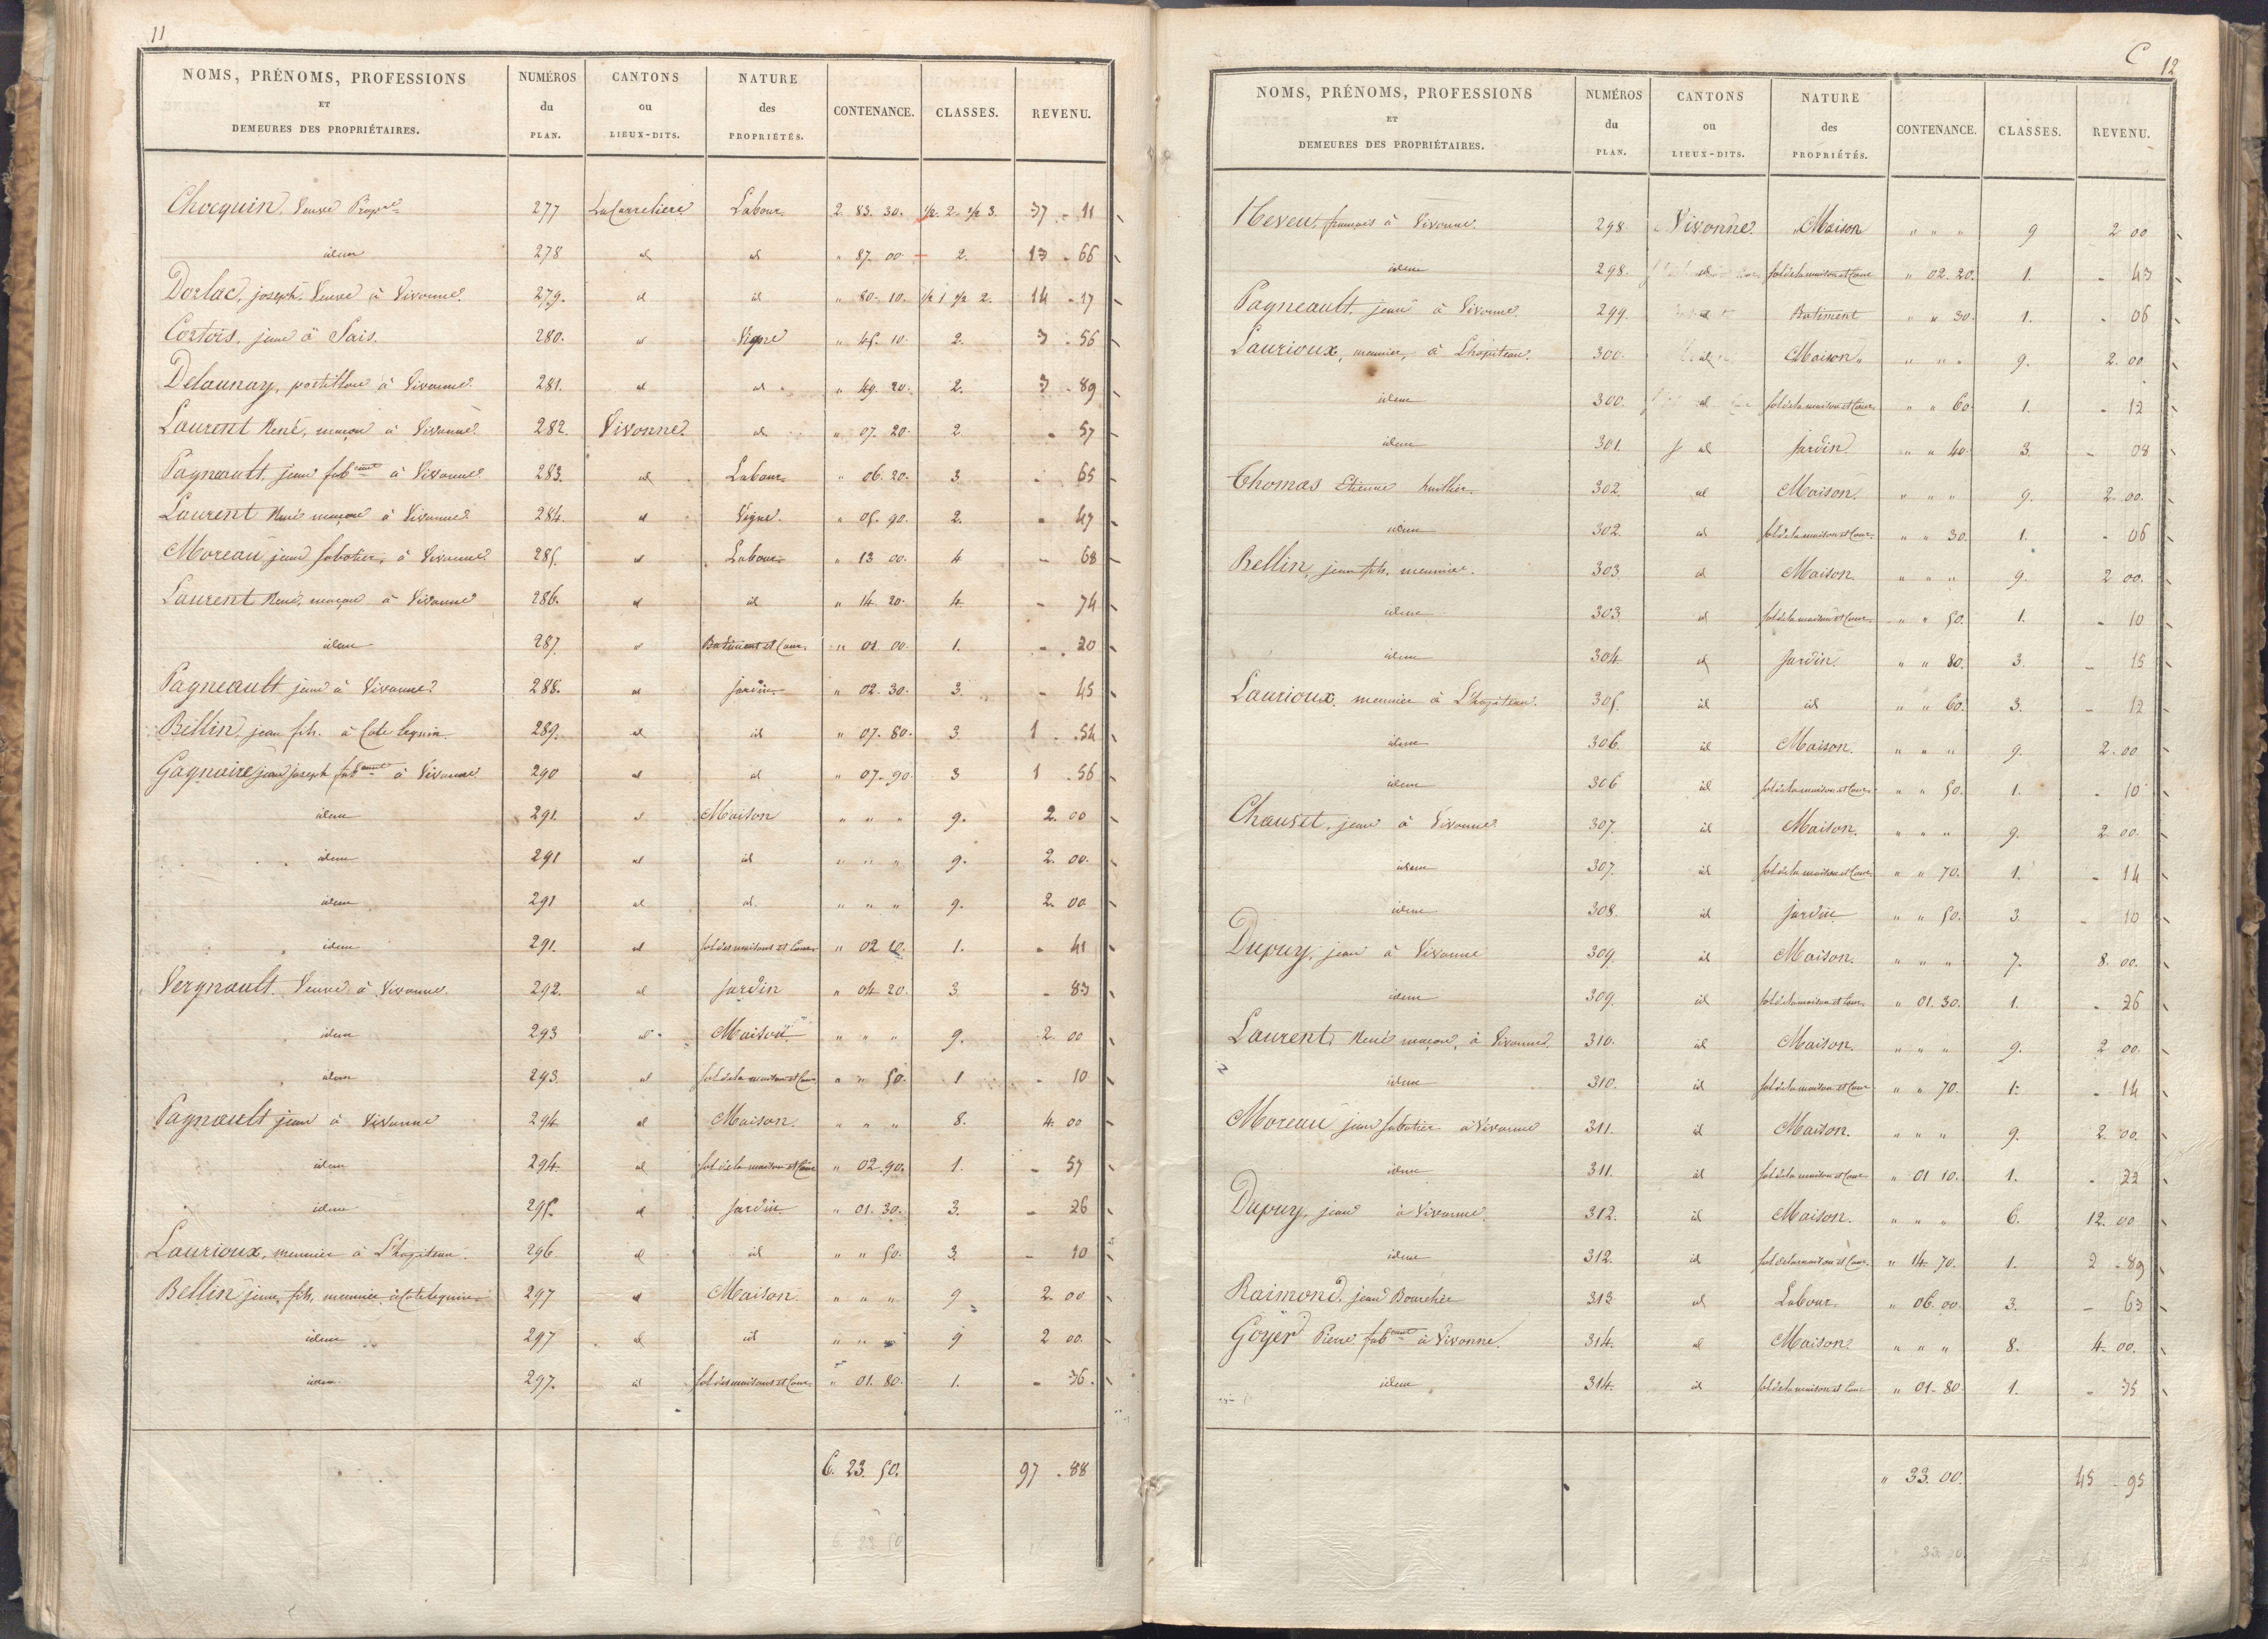 11
NOMS, PRÉNOMS, PROFESSIONS ET DEMEURES DES PROPRIÉTAIRES. NUMÉROS du PLAN. CANTONS ou LIEUX-DITS. NATURE des PROPRIÉTÉS. CONTENANCE. CLASSES. REVENU.
Chocquin, Veuve Propre 277 La Carreliere Labour. 2. 83. 30. 1/2. 2. 1/2 3. 37 - 11
idem 278 id id " 87. 00. 2. 13 - 66
Dorlac, joseph, Veuve à Vivonne. 279. id id " 80. 10. 1/2 1 1/2 2. 14 - 17
Cortois, jean à Sais. 280. id Vigne " 45. 10. 2. 3 - 56
Delaunay, postillon à Vivonne. 281. id id " 49. 20. 2. 3 - 89
Laurent René, maçon à Vivonne. 282. Vivonne. id " 07. 20. 2 - 57
Pagneault, jean fabcant à Vivonne 283. id Labour. " 06. 20. 3 - 65
Laurent René maçon à Vivonne 284. id Vigne. " 05. 90. 2. - 47
Moreau jean sabotier, à Vivonne 285. id Labour " 13 00. 4 - 68
Laurent René, maçon à Vivonne 286. id id " 14. 20. 4 - 74
idem 287 id Batiment et Cour. " 01. 00. 1. - 20
Pagneault jean à Vivonne 288. id jardin " 02. 30. 3. - 45
Bellin, jean fils. à Cote lequin 289. id id " 07. 80. 3 1 - 54
Gagnaire jean joseph fabcant à Vivonne 290 id id " 07. 90. 3 1 - 56
idem 291. id Maison " " " 9. 2. 00
idem 291 id id " " " 9. 2. 00.
idem 291 id id. " " " 9. 2. 00
idem 291. id sol des maisons et Cour " 02 10. 1. - 41
Vergnault. Veuve à Vivonne. 292. id jardin " 04 20. 3 - 83
idem 293 id Maison. " " " 9. 2. 00
idem 293. id sol de la maison et Cour " " 50. 1 - 10
Pagnault jean à Vivonne 294 id Maison. " " " 8. 4. 00
idem 294. id sol de la maison et Cour " 02. 90. 1. - 57
idem 295. id Jardin " 01. 30. 3. - 26
Laurioux, meunier à L'hopiteau. 296 id id " " 50. 3 - 10
Bellin jean, fils, meunier à Cotelequin 297 id Maison. " " " 9 2. 00
idem 297 id id " " " 9 2 00.
idem 297. id sol des maisons et Cour. " 01. 80. 1. - 36.
6. 23. 50. 97 - 88
6. 23 50
C 12
NOMS, PRÉNOMS, PROFESSIONS ET DEMEURES DES PROPRIÉTAIRES. NUMÉROS du PLAN. CANTONS ou LIEUX-DITS. NATURE des PROPRIÉTÉS. CONTENANCE. CLASSES. REVENU.
Neveu, francois à Vivonne. 298. Vivonne. Maison " " " 9 2 00
idem 298. id sol de la maison et Cour " 02. 20. 1. - 43
Pagneault. jean à Vivonne. 299. id Batiment " " 30. 1. - 06
Laurioux, meunier, à L'hopiteau. 300. id Maison " " " 9. 2. 00
idem 300. id sol de la maison et Cour " " 60. 1. - 12
idem 301. id jardin " " 40. 3. - 08
Thomas Etienne huillier. 302. id Maison. " " " 9. 2. 00.
idem 302. id sol de la maison et Cour. " " 30. 1. - 06
Bellin, jean fils, meunier. 303. id Maison. " " " 9. 2 00.
idem 303 id sol de la maison et Cour " " 50. 1. - 10
idem 304 id jardin. " " 80. 3. - 15
Laurioux, meunier à L'hopiteau. 305. id id " " 60. 3. - 12
idem 306. id Maison. " " " 9. 2. 00
idem 306 id sol de la maison et Cour " " 50. 1. - 10
Chauvet, jean à Vivonne 307. id Maison. " " " 9. 2 00.
idem 307. id sol de la maison et Cour " " 70. 1. - 14
idem 308. id jardin " " 50. 3. - 10
Dupuy, jean à Vivonne 309 id Maison. " " " 7. 8. 00.
idem 309. id sol de la maison et Cour. " 01. 30. 1. - 26
Laurent, René maçon, à Vivonne. 310. id Maison. " " " 9. 2 00.
idem 310. id sol de la maison et Cour " " 70. 1. - 14
Moreau jean sabotier à Vivonne 311. id Maison. " " " 9. 2. 00.
idem 311. id sol de la maison et Cour " 01 10. 1. - 22
Dupuy, jean à Vivonne. 312. id Maison. " " " 6. 12. 00
idem 312. id sol de la maison et Cour. " 14. 70. 1. 2 - 89
Raimond, jean Bourelier 313 id Labour. " 06. 00. 3. - 63
Goyer Pierre fabcant à Vivonne. 314. id Maison " " " 8. 4. 00.
idem 314. id sol de la maison et Cour " 01. 80. 1. - 35
" 33. 00. 45 - 95